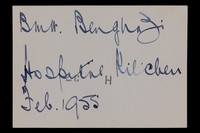 B.M.H. Benghazi
Hospital Kitchen
Feb. 1955